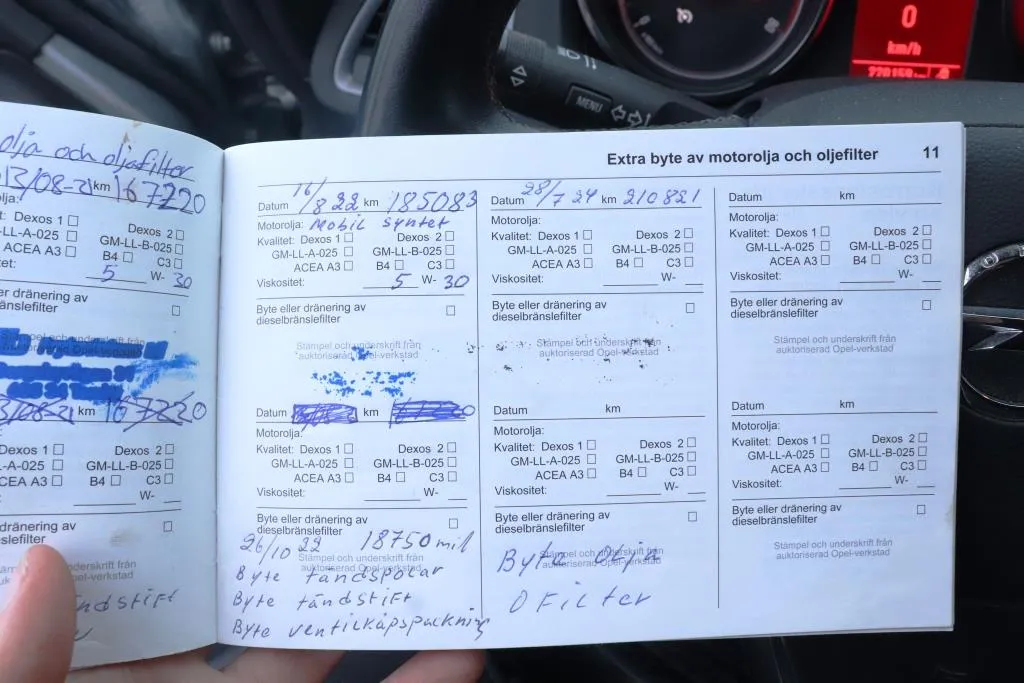 0
km/h
MENU
olja och oljefilter
13/08-21 km 167220
olja:
t: Dexos 1 □ Dexos 2 □
-LL-A-025 □ GM-LL-B-025 □
ACEA A3 □ B4 □ C3 □
tet: 5 W- 30
er dränering av
bränslefilter □
Stämpel och underskrift från
auktoriserad Opel-verkstad
13/08-21 km 167220
Dexos 1 □ Dexos 2 □
L-A-025 □ GM-LL-B-025 □
CEA A3 □ B4 □ C3 □
W-
dränering av
slefilter □
Stämpel och underskrift från
auktoriserad Opel-verkstad
ändstift
Extra byte av motorolja och oljefilter 11
Datum 16/8 22 km 185083
Motorolja: Mobil syntet
Kvalitet: Dexos 1 □ Dexos 2 □
GM-LL-A-025 □ GM-LL-B-025 □
ACEA A3 □ B4 □ C3 □
Viskositet: 5 W- 30
Byte eller dränering av
dieselbränslefilter □
Stämpel och underskrift från
auktoriserad Opel-verkstad
Datum km
Motorolja:
Kvalitet: Dexos 1 □ Dexos 2 □
GM-LL-A-025 □ GM-LL-B-025 □
ACEA A3 □ B4 □ C3 □
Viskositet: W-
Byte eller dränering av
dieselbränslefilter □
26/10 22 18750 mil
Stämpel och underskrift från
auktoriserad Opel-verkstad
Byte tändspolar
Byte tändstift
Byte ventilkåpspackning
Datum 28/7 24 km 210821
Motorolja:
Kvalitet: Dexos 1 □ Dexos 2 □
GM-LL-A-025 □ GM-LL-B-025 □
ACEA A3 □ B4 □ C3 □
Viskositet: W-
Byte eller dränering av
dieselbränslefilter □
Stämpel och underskrift från
auktoriserad Opel-verkstad
Datum km
Motorolja:
Kvalitet: Dexos 1 □ Dexos 2 □
GM-LL-A-025 □ GM-LL-B-025 □
ACEA A3 □ B4 □ C3 □
Viskositet: W-
Byte eller dränering av
dieselbränslefilter □
Stämpel och underskrift från
auktoriserad Opel-verkstad
Byte Olja
O Filter
Datum km
Motorolja:
Kvalitet: Dexos 1 □ Dexos 2 □
GM-LL-A-025 □ GM-LL-B-025 □
ACEA A3 □ B4 □ C3 □
Viskositet: W-
Byte eller dränering av
dieselbränslefilter □
Stämpel och underskrift från
auktoriserad Opel-verkstad
Datum km
Motorolja:
Kvalitet: Dexos 1 □ Dexos 2 □
GM-LL-A-025 □ GM-LL-B-025 □
ACEA A3 □ B4 □ C3 □
Viskositet: W-
Byte eller dränering av
dieselbränslefilter □
Stämpel och underskrift från
auktoriserad Opel-verkstad